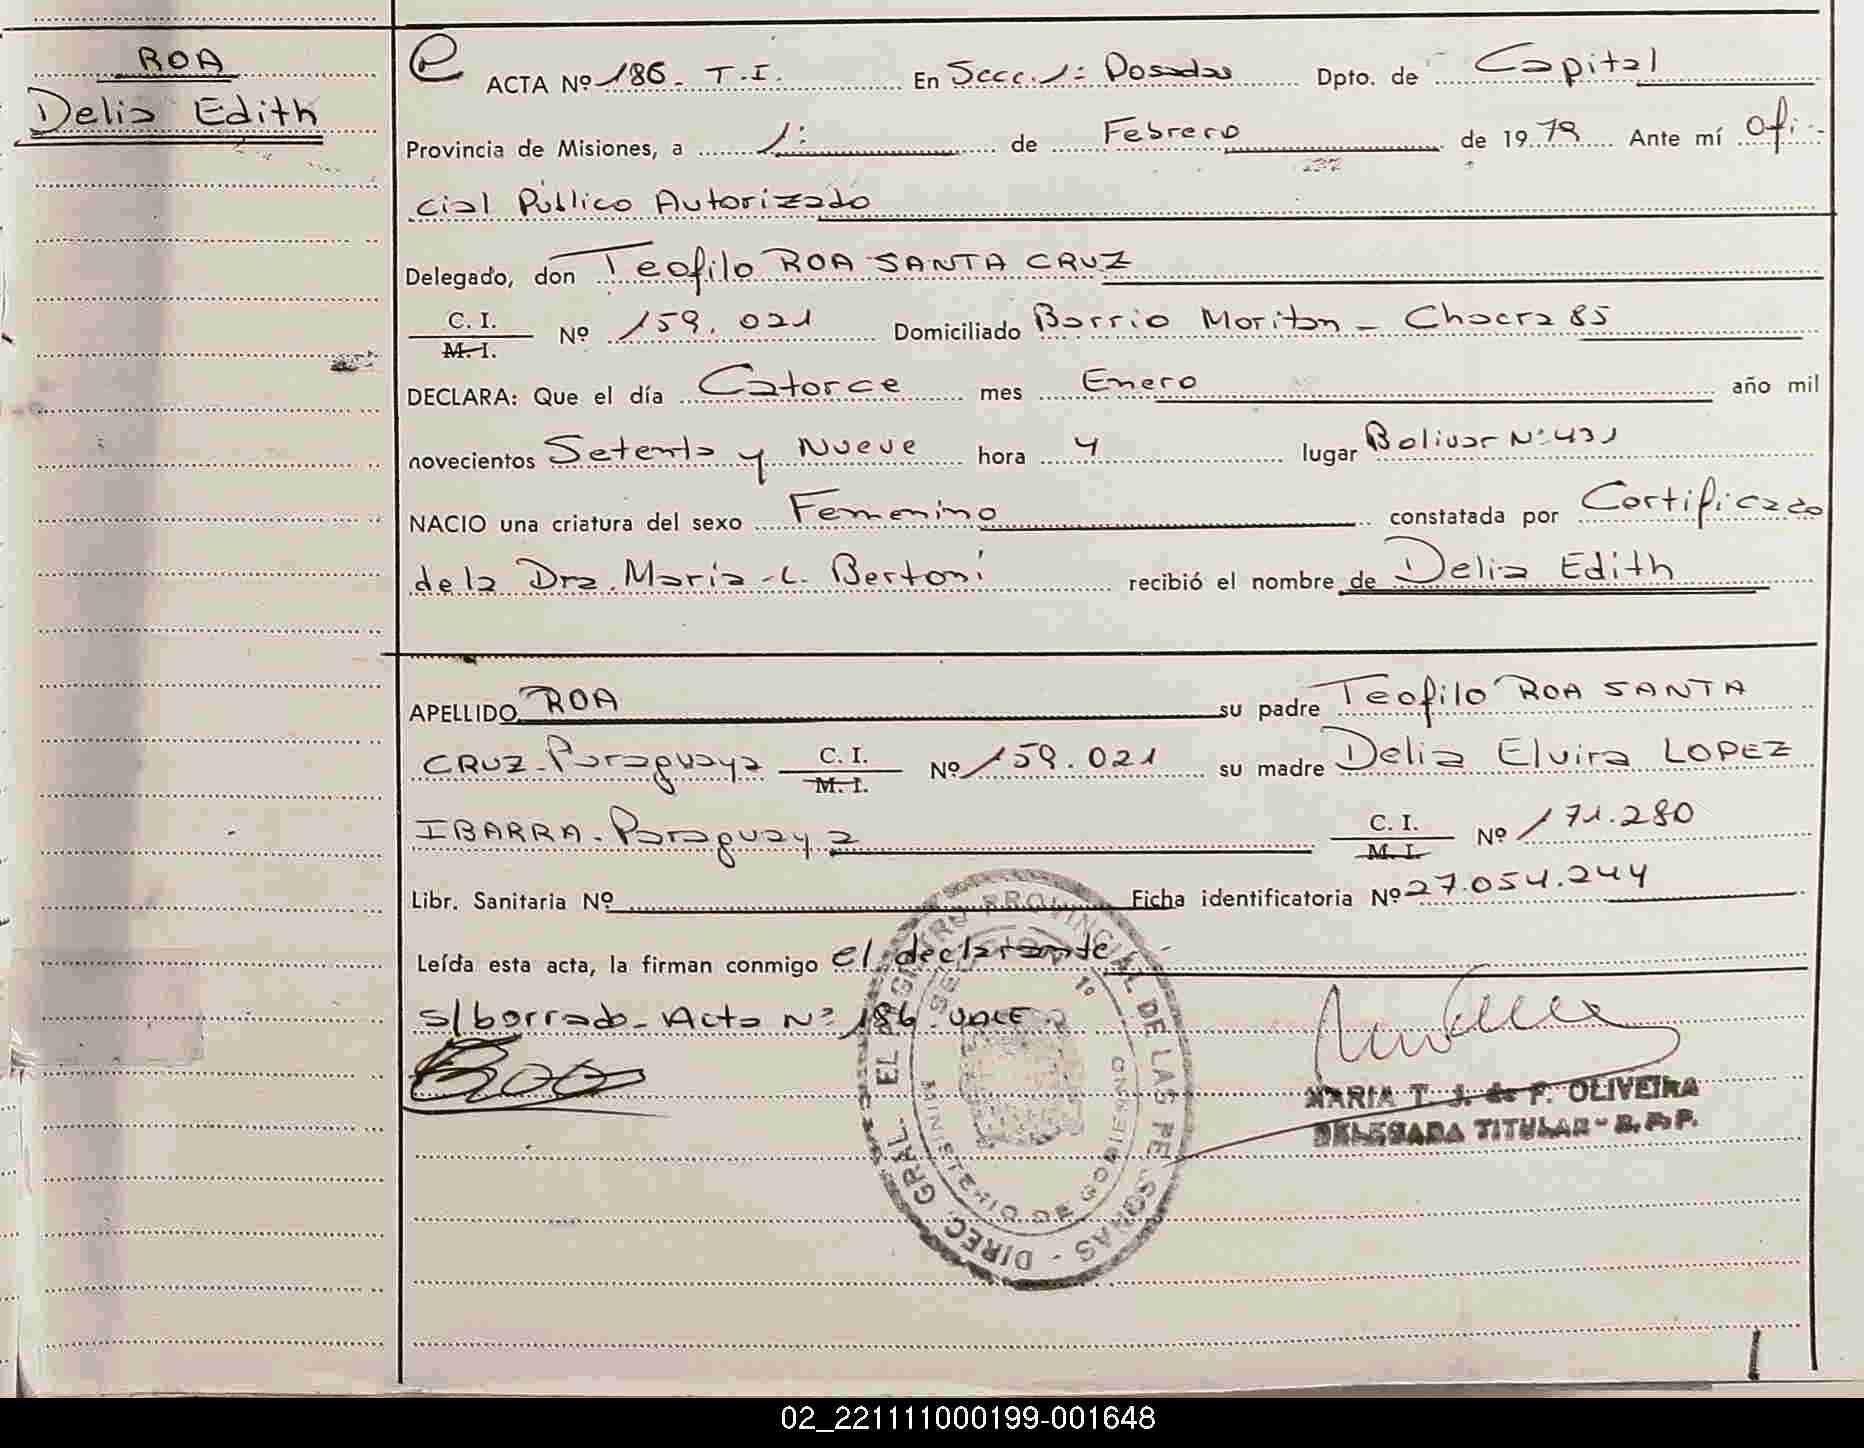 ROA
Delia Edith
e ACTA Nº 186. T.I. En Secc. 1: Posadas Dpto. de Capital
Provincia de Misiones, a 1: de Febrero de 1979 Ante mí Ofi-
cial Público Autorizado
Delegado, don Teofilo ROA SANTA CRUZ
C. I.
M. I. Nº 159.021 Domiciliado Barrio Moritan - Chacra 85
DECLARA: Que el día Catorce mes Enero año mil
novecientos Setenta y Nueve hora 4 lugar Bolivar Nº: 431
NACIO una criatura del sexo Femenino constatada por Certificado
de la Dra. Maria - L. Bertoni recibió el nombre de Delia Edith
APELLIDO ROA su padre Teofilo ROA SANTA
CRUZ - Paraguaya C. I. Nº 159.021 su madre Delia Elvira LOPEZ
M. I.
IBARRA - Paraguaya C. I. Nº 171.280
M. I.
Libr. Sanitaria Nº Ficha identificatoria Nº 27.054.244
Leída esta acta, la firman conmigo el declarante
s/borrado - Acta Nº: 186. VALE
Roa
MARIA T. J. de F. OLIVEIRA
DELEGADA TITULAR - R. P. P.
DIREC. GRAL. EL REGISTRO PROVINCIAL DE LAS PERSONAS -
MINISTERIO DE GOBIERNO
1º
02_221111000199-001648